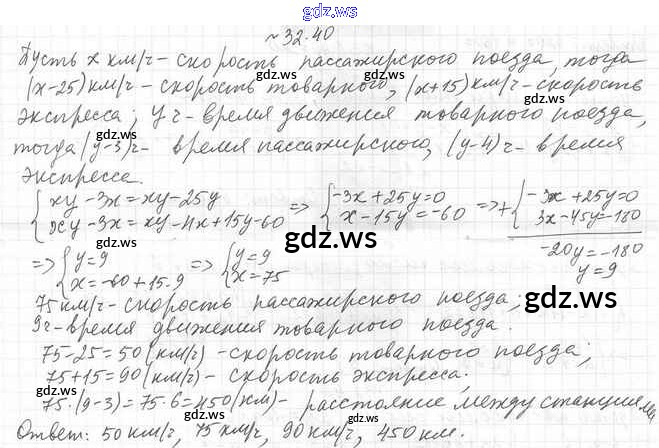 gdz.ws
№32.40
Пусть x км/ч - скорость пассажирского поезда, тогда
(x-25) км/ч - скорость товарного, (x+15) км/ч - скорость
экспресса; y ч - время движения товарного поезда,
тогда (y-3) ч - время пассажирского, (y-4) ч - время
экспресса.
{xy-3x=xy-25y => {-3x+25y=0 => +{-3x+25y=0
{xy-3x=xy-4x+15y-60 {x-15y=-60 {3x-45y=-180
-20y=-180
y=9
=> {y=9 => {y=9
{x=-60+15·9 {x=75
75 км/ч - скорость пассажирского поезда;
9 ч - время движения товарного поезда.
75-25=50 (км/ч) - скорость товарного поезда;
75+15=90 (км/ч) - скорость экспресса;
75·(9-3)=75·6=450 (км) - расстояние между станциями
Ответ: 50 км/ч, 75 км/ч, 90 км/ч, 450 км.
gdz.ws
gdz.ws
gdz.ws
gdz.ws
gdz.ws
gdz.ws
gdz.ws
gdz.ws
gdz.ws